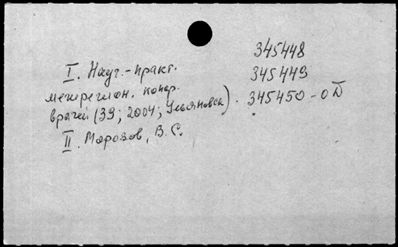 345448
I. Науч.-практ.
345449
межрегион. конф.
врачей (39; 2004; Ульяновск).
345450-о
II. Морозов, В. С.